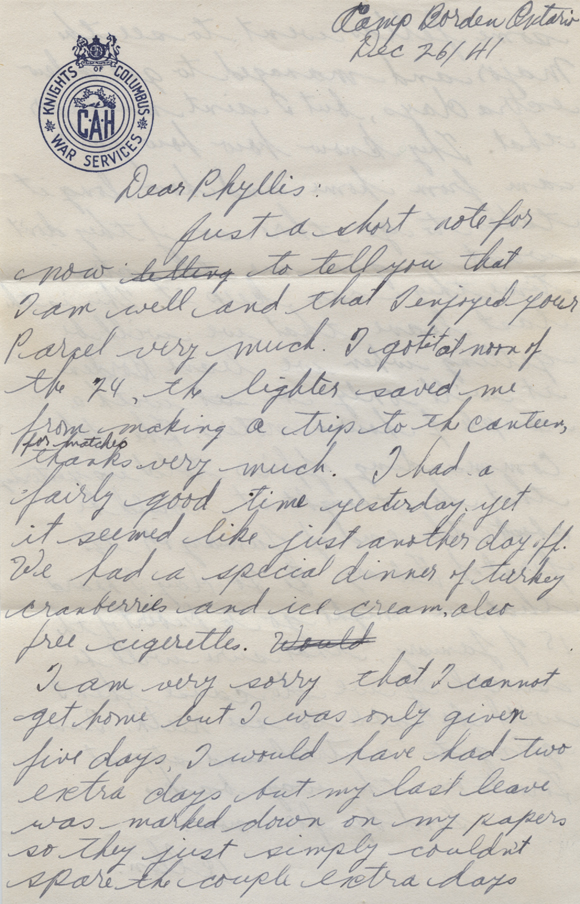 Camp Borden Ontario
Dec 26/41
KNIGHTS OF COLUMBUS
CAH
WAR SERVICES
Dear Phyllis:
Just a short note for
now telling to tell you that
I am well and that I enjoyed your
Parcel very much. I got it at noon of
the 24, the lighter saved me
from making a trip to the canteen,
for matches
thanks very much. I had a
fairly good time yesterday, yet
it seemed like just another day off.
We had a special dinner of turkey
cranberries and ice cream, also
free cigerettes. Would
I am very sorry that I cannot
get home but I was only given
five days, I would have had two
extra days but my last leave
was marked down on my papers
so they just simply couldn't
spare the couple extra days